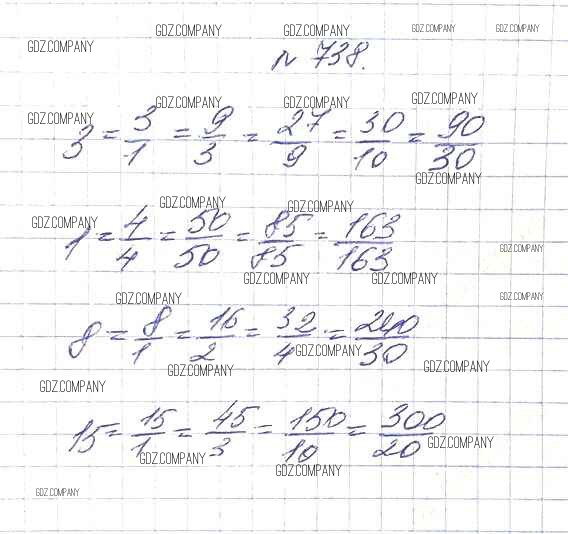 № 738.
3 = 3/1 = 9/3 = 27/9 = 30/10 = 90/30
1 = 4/4 = 50/50 = 85/85 = 163/163
8 = 8/1 = 16/2 = 32/4 = 240/30
15 = 15/1 = 45/3 = 150/10 = 300/20
GDZ.COMPANY GDZ.COMPANY GDZ.COMPANY GDZ.COMPANY GDZ.COMPANY
GDZ.COMPANY GDZ.COMPANY GDZ.COMPANY GDZ.COMPANY
GDZ.COMPANY
GDZ.COMPANY GDZ.COMPANY GDZ.COMPANY
GDZ.COMPANY
GDZ.COMPANY GDZ.COMPANY
GDZ.COMPANY GDZ.COMPANY
GDZ.COMPANY GDZ.COMPANY GDZ.COMPANY
GDZ.COMPANY
GDZ.COMPANY GDZ.COMPANY GDZ.COMPANY
GDZ.COMPANY